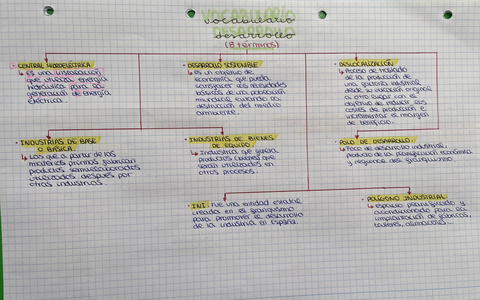 vocabulario
desarrollo
(8 términos)
CENTRAL HIDROELÉCTRICA
↳ Es una instalación
que utiliza energía
hidráulica para la
generación de energía
eléctrica.
DESARROLLO SOSTENIBLE
↳ es un objetivo de
economía que pueda
satisfacer las necesidades
básicas de una población
mundial evitando la
destrucción del medio
ambiente.
DESLOCALIZACIÓN
↳ Proceso de traslado
de la producción de
una industria
desde su ubicación original
a otro lugar con el
objetivo de reducir sus
costes de producción e
incrementar el margen
de beneficio.
INDUSTRIAS DE BASE
O BÁSICA
↳ Las que a partir de las
materias primas fabrican
productos semielaborados
utilizados después por
otras industrias.
INDUSTRIAS DE BIENES
DE EQUIPO
↳ Industrias que genera
productos que
serán utilizados en
otros procesos.
POLO DE DESARROLLO
↳ Foco de desarrollo industrial,
producto de la planificación económica
y regional del franquismo.
INI: Fue una entidad estatal
creada en el franquismo
para promover el desarrollo
de la industria en España.
POLÍGONO INDUSTRIAL
↳ espacio planificado y
acondicionado para la
implantación de fábricas,
talleres, almacenes...